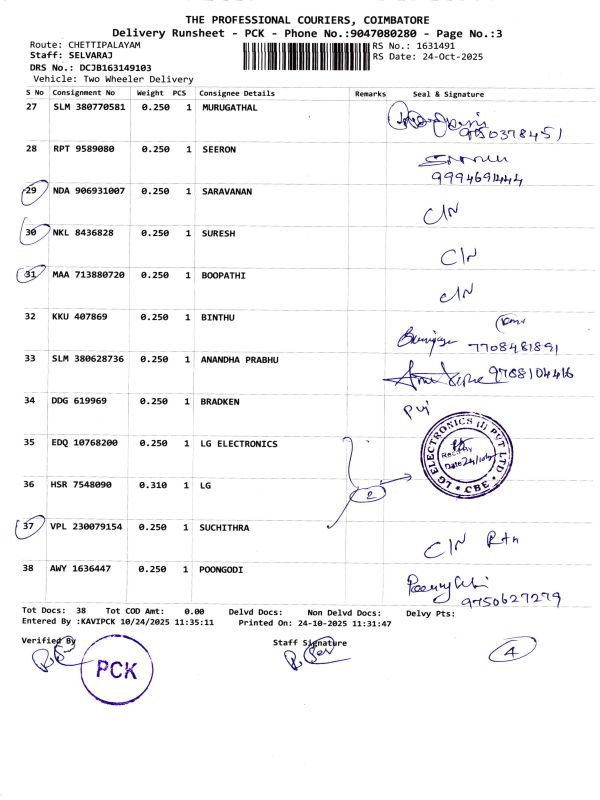 THE PROFESSIONAL COURIERS, COIMBATORE
Delivery Runsheet - PCK - Phone No.:9047080280 - Page No.:3
Route: CHETTIPALAYAM RS No.: 1631491
Staff: SELVARAJ RS Date: 24-Oct-2025
DRS No.: DCJB163149103
Vehicle: Two Wheeler Delivery
S No Consignment No Weight PCS Consignee Details Remarks Seal & Signature
27 SLM 380770581 0.250 1 MURUGATHAL
9750378451
28 RPT 9589080 0.250 1 SEERON
29 NDA 906931007 0.250 1 SARAVANAN C/N
30 NKL 8436828 0.250 1 SURESH C/N
31 MAA 713880720 0.250 1 BOOPATHI C/N
32 KKU 407869 0.250 1 BINTHU
7708481891
33 SLM 380628736 0.250 1 ANANDHA PRABHU 9788104416
34 DDG 619969 0.250 1 BRADKEN
35 EDQ 10768200 0.250 1 LG ELECTRONICS
LG ELECTRONICS (I) PVT LTD * CBE *
36 HSR 7548090 0.310 1 LG 2
37 VPL 230079154 0.250 1 SUCHITHRA C/N
38 AWY 1636447 0.250 1 POONGODI
9750627279
Tot Docs: 38 Tot COD Amt: 0.00 Delvd Docs: Non Delvd Docs: Delvy Pts:
Entered By :KAVIPCK 10/24/2025 11:35:11 Printed On: 24-10-2025 11:31:47
Verified By Staff Signature
PCK 4